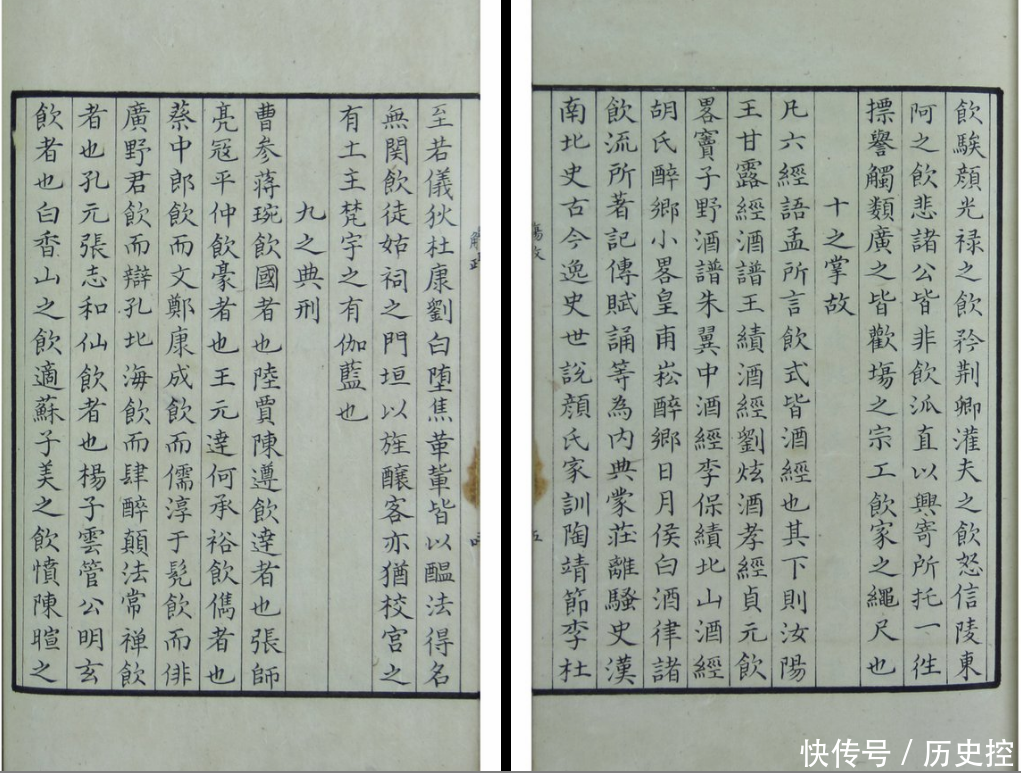 至若儀狄杜康劉白墮焦革軰皆以醞法得名
無関飲徒姑祠之門垣以旌釀客亦猶校宮之
有土主梵宇之有伽藍也
九之典刑
曹參蔣琬飲國者也陸賈陳遵飲達者也張師
亮冦平仲飲豪者也王元達何承裕飲儁者也
蔡中郎飲而文鄭康成飲而儒淳于髡飲而俳
廣野君飲而辯孔北海飲而肆醉顛法常禅飲
者也孔元張志和仙飲者也楊子雲管公明玄
飲者也白香山之飲適蘇子美之飲憤陳暄之
飲騃顏光禄之飲矜荆卿灌夫之飲怒信陵東
阿之飲悲諸公皆非飲派直以興寄所托一徃
摽譽觸類廣之皆歡塲之宗工飲家之繩尺也
十之掌故
凡六經語孟所言飲式皆酒經也其下則汝陽
王甘露經酒譜王績酒經劉炫酒孝經貞元飲
畧竇子野酒譜朱翼中酒經李保績北山酒經
胡氏醉鄉小畧皇甫崧醉鄉日月侯白酒律諸
飲流所著記傳賦誦等為内典蒙莊離騷史漢
南北史古今逸史世說顏氏家訓陶靖節李杜
快传号 / 历史控